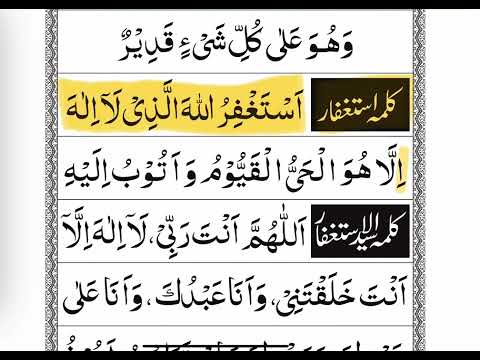 وَهُوَ عَلٰى كُلِّ شَىْءٍ قَدِيْرٌ
کلمہ استغفار اَسْتَغْفِرُ اللّٰهَ الَّذِىْ لَآ اِلٰهَ
اِلَّا هُوَ الْحَىُّ الْقَيُّوْمُ وَاَتُوْبُ اِلَيْهِ
کلمہ سید الاستغفار اَللّٰهُمَّ اَنْتَ رَبِّىْ، لَآ اِلٰهَ اِلَّآ
اَنْتَ خَلَقْتَنِىْ، وَاَنَا عَبْدُكَ، وَاَنَا عَلٰى